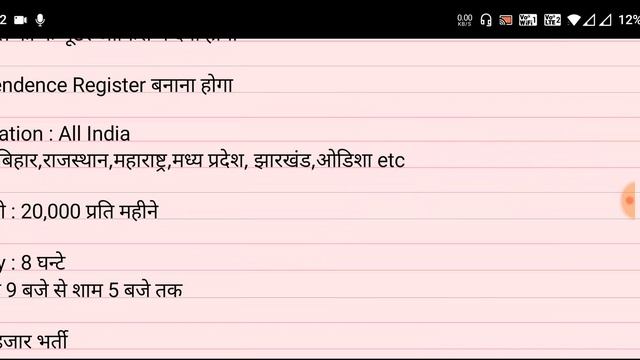 2 0.00 KB/S VoI WiFi1 VoI LTE2 12%
endence Register बनाना होगा
ation : All India
बिहार,राजस्थान,महाराष्ट्र,मध्य प्रदेश, झारखंड,ओडिशा etc
ी : 20,000 प्रति महीने
y : 8 घन्टे
9 बजे से शाम 5 बजे तक
हजार भर्ती